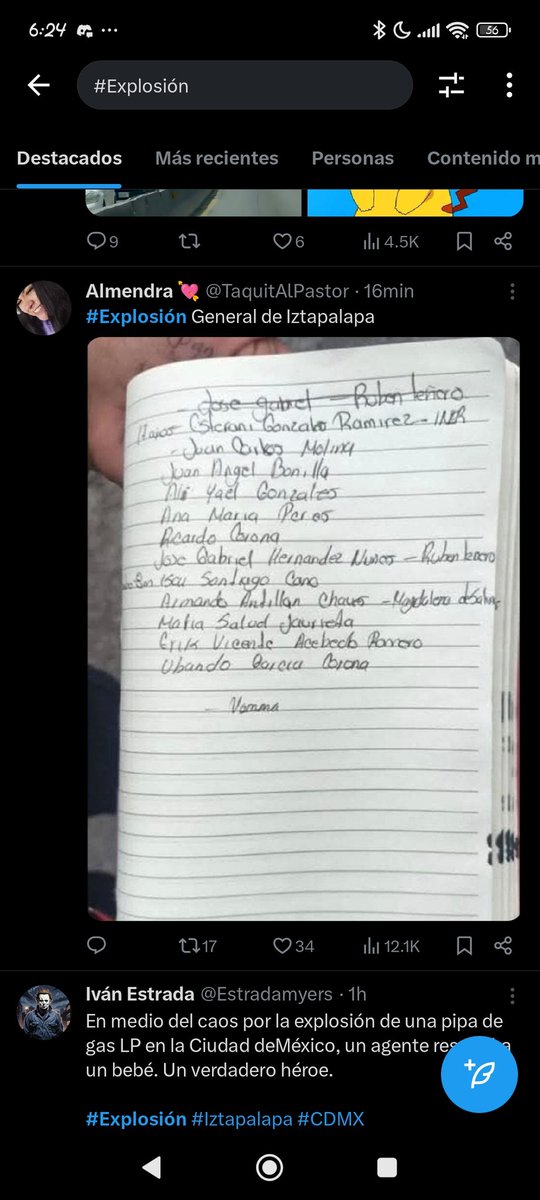 6:24
56
#Explosión
Destacados Más recientes Personas Contenido m
9 6 4.5K
Almendra 💘 @TaquitAlPastor · 16min
#Explosión General de Iztapalapa
Jose gabriel – Ruben leñero
Gonzalo Ramirez – INER
- Juan Carlos Molina
Juan Angel Bonilla
Yael Gonzales
Ana Maria Peres
Ricardo Corona
Jose Gabriel Hernandez – Ruben lenero
Isai Santiago Cano
Armando Antillan Chaves – Magdalena
Maria Salud
Erik Vicente Acebedo Romero
Ubando Garcia Corona
17 34 12.1K
Iván Estrada @Estradamyers · 1h
En medio del caos por la explosión de una pipa de
gas LP en la Ciudad deMéxico, un agente
un bebé. Un verdadero héroe.
#Explosión #Iztapalapa #CDMX